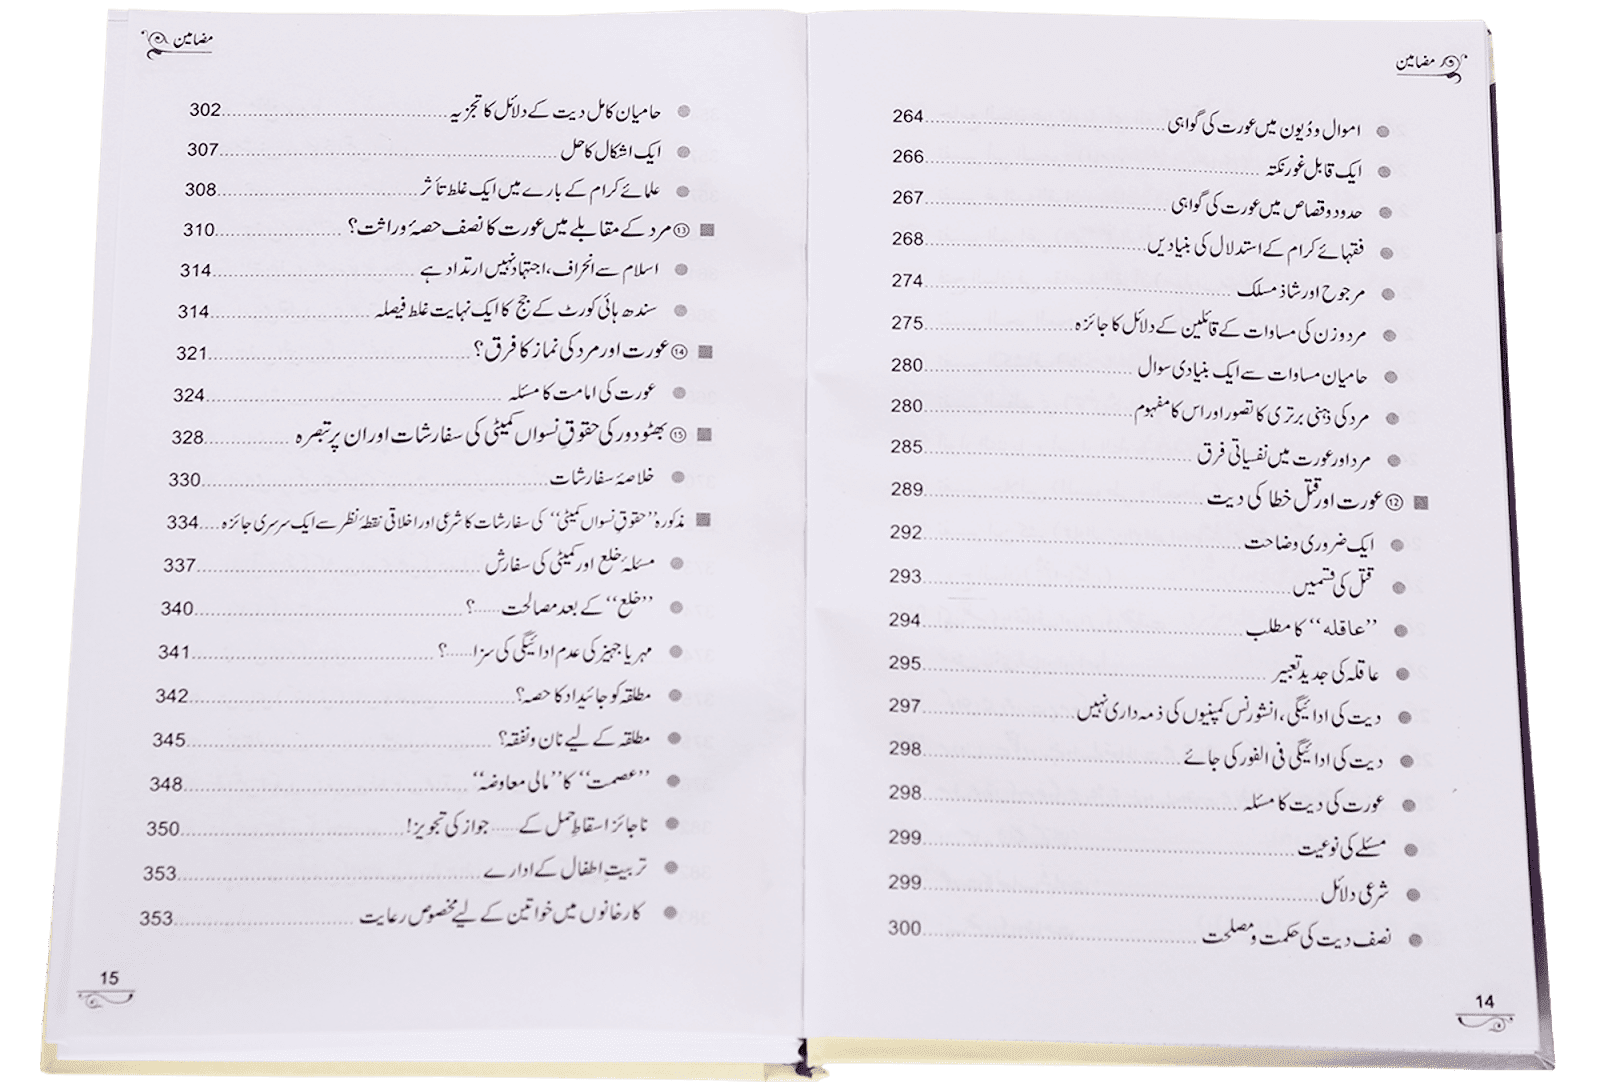 مضامین
اموال و دُیون میں عورت کی گواہی 264
ایک قابل غور نکتہ 266
حدود و قصاص میں عورت کی گواہی 267
فقہائے کرام کے استدلال کی بنیادیں 268
مرجوح اور شاذ مسلک 274
مرد و زن کی مساوات کے قائلین کے دلائل کا جائزہ 275
حامیان مساوات سے ایک بنیادی سوال 280
مرد کی ذہنی برتری کا تصور اور اس کا مفہوم 280
مرد اور عورت میں نفسیاتی فرق 285
⑫ عورت اور قتل خطا کی دیت 289
ایک ضروری وضاحت 292
قتل کی قسمیں 293
’’عاقلہ‘‘ کا مطلب 294
عاقلہ کی جدید تعبیر 295
دیت کی ادائیگی، انشورنس کمپنیوں کی ذمہ داری نہیں 297
دیت کی ادائیگی فی الفور کی جائے 298
عورت کی دیت کا مسئلہ 298
مسئلے کی نوعیت 299
شرعی دلائل 299
نصف دیت کی حکمت و مصلحت 300
14
مضامین
حامیان کامل دیت کے دلائل کا تجزیہ 302
ایک اشکال کا حل 307
علمائے کرام کے بارے میں ایک غلط تأثر 308
⑬ مرد کے مقابلے میں عورت کا نصف حصۂ وراثت؟ 310
اسلام سے انحراف، اجتہاد نہیں ارتداد ہے 314
سندھ ہائی کورٹ کے جج کا ایک نہایت غلط فیصلہ 314
⑭ عورت اور مرد کی نماز کا فرق؟ 321
عورت کی امامت کا مسئلہ 324
⑮ بھٹو دور کی حقوقِ نسواں کمیٹی کی سفارشات اور ان پر تبصرہ 328
خلاصۂ سفارشات 330
مذکورہ ’’حقوقِ نسواں کمیٹی‘‘ کی سفارشات کا شرعی اور اخلاقی نقطۂ نظر سے ایک سرسری جائزہ 334
مسئلۂ خلع اور کمیٹی کی سفارش 337
’’خلع‘‘ کے بعد مصالحت ......؟ 340
مہر یا جہیز کی عدم ادائیگی کی سزا ......؟ 341
مطلقہ کو جائیداد کا حصہ؟ 342
مطلقہ کے لیے نان و نفقہ؟ 345
’’عصمت‘‘ کا ’’مالی معاوضہ‘‘ 348
ناجائز اسقاطِ حمل کے ...... جواز کی تجویز! 350
تربیتِ اطفال کے ادارے 353
کارخانوں میں خواتین کے لیے مخصوص رعایت 353
15